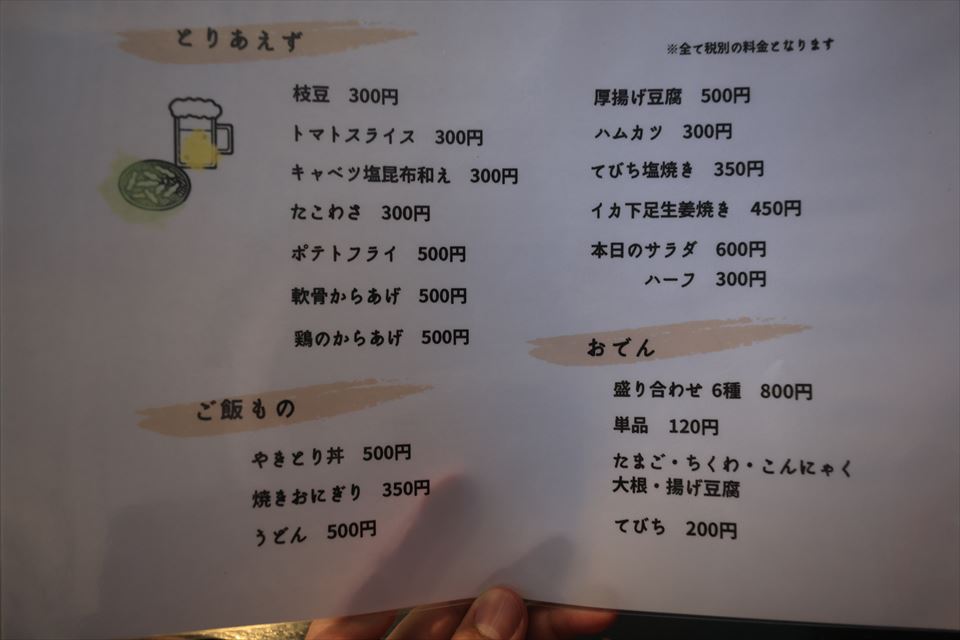 とりあえず
※全て税別の料金となります
枝豆 300円
トマトスライス 300円
キャベツ塩昆布和え 300円
たこわさ 300円
ポテトフライ 500円
軟骨からあげ 500円
鶏のからあげ 500円
厚揚げ豆腐 500円
ハムカツ 300円
てびち塩焼き 350円
イカ下足生姜焼き 450円
本日のサラダ 600円
ハーフ 300円
ご飯もの
やきとり丼 500円
焼きおにぎり 350円
うどん 500円
おでん
盛り合わせ 6種 800円
単品 120円
たまご・ちくわ・こんにゃく
大根・揚げ豆腐
てびち 200円